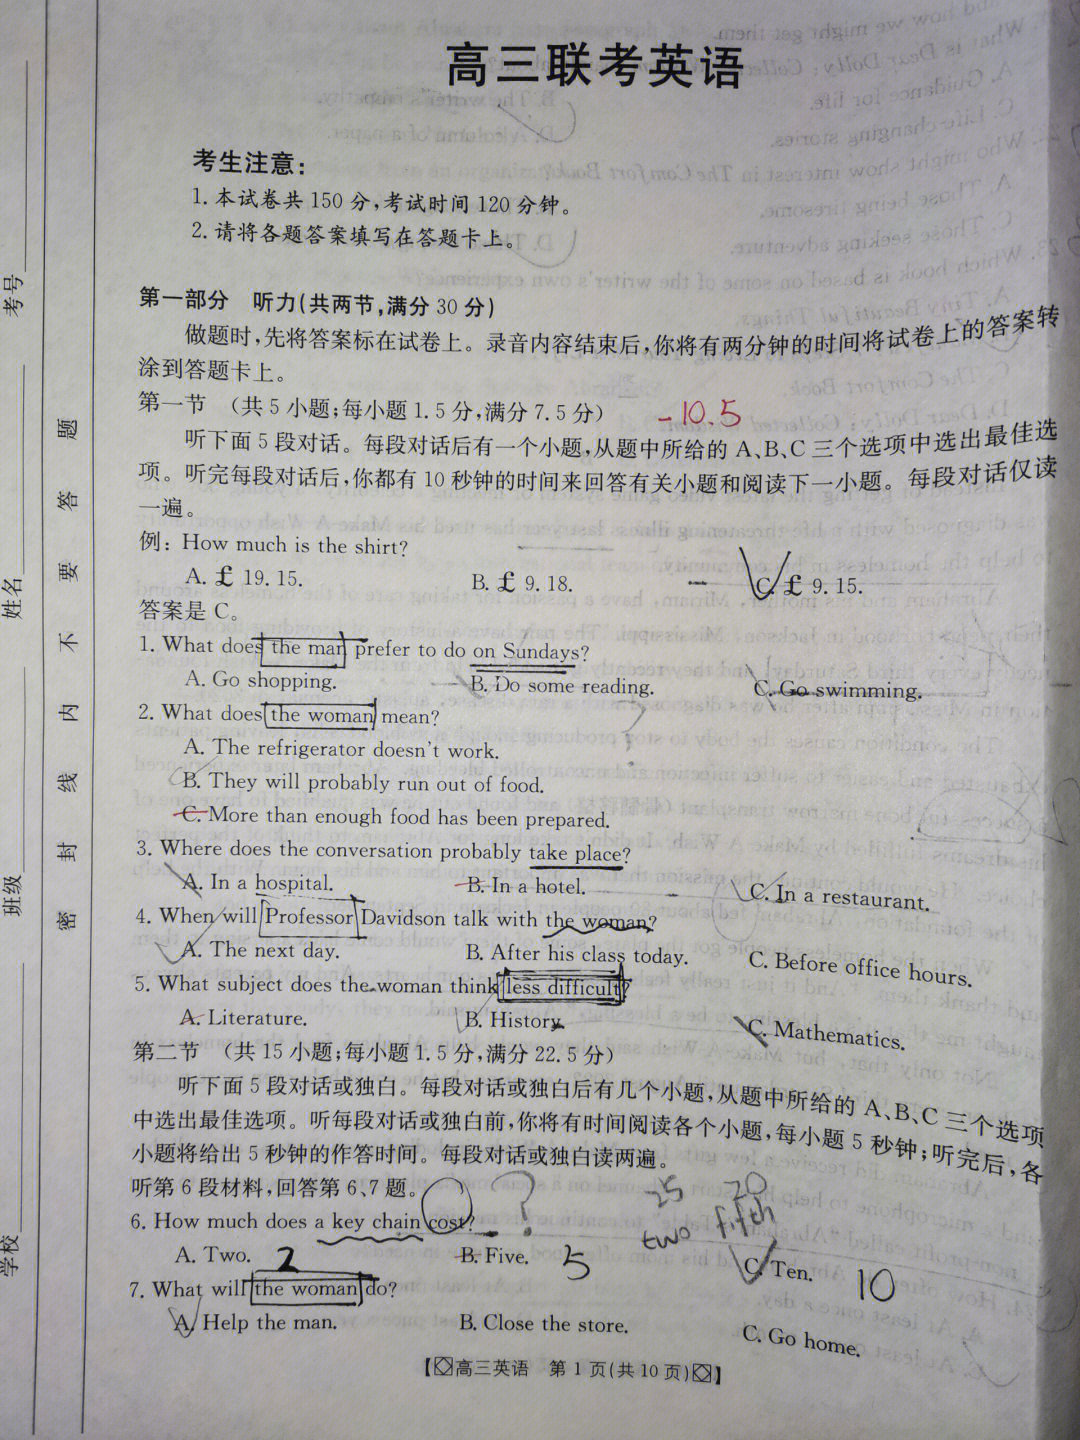 高三联考英语
考生注意:
1.本试卷共150分,考试时间120分钟。
2.请将各题答案填写在答题卡上。
第一部分 听力(共两节,满分30分)
做题时,先将答案标在试卷上。录音内容结束后,你将有两分钟的时间将试卷上的答案转
涂到答题卡上。
第一节 (共5小题;每小题1.5分,满分7.5分) -10.5
听下面5段对话。每段对话后有一个小题,从题中所给的A、B、C三个选项中选出最佳选
项。听完每段对话后,你都有10秒钟的时间来回答有关小题和阅读下一小题。每段对话仅读
一遍。
例: How much is the shirt?
A. £ 19.15. B. £ 9.18. C. £ 9.15.
答案是C。
1. What does the man prefer to do on Sundays?
A. Go shopping. B. Do some reading. C. Go swimming.
2. What does the woman mean?
A. The refrigerator doesn't work.
B. They will probably run out of food.
C. More than enough food has been prepared.
3. Where does the conversation probably take place?
A. In a hospital. B. In a hotel. C. In a restaurant.
4. When will Professor Davidson talk with the woman?
A. The next day. B. After his class today. C. Before office hours.
5. What subject does the woman think less difficult?
A. Literature. B. History. C. Mathematics.
第二节 (共15小题;每小题1.5分,满分22.5分)
听下面5段对话或独白。每段对话或独白后有几个小题,从题中所给的A、B、C三个选项
中选出最佳选项。听每段对话或独白前,你将有时间阅读各个小题,每小题5秒钟;听完后,各
小题将给出5秒钟的作答时间。每段对话或独白读两遍。
听第6段材料,回答第6、7题。 ? 25 20
6. How much does a key chain cost? two fifth
A. Two. 2 B. Five. 5 C. Ten. 10
7. What will the woman do?
A. Help the man. B. Close the store. C. Go home.
【高三英语 第1页(共10页)】
学校
班级
姓名
考号
密封线内不要答题